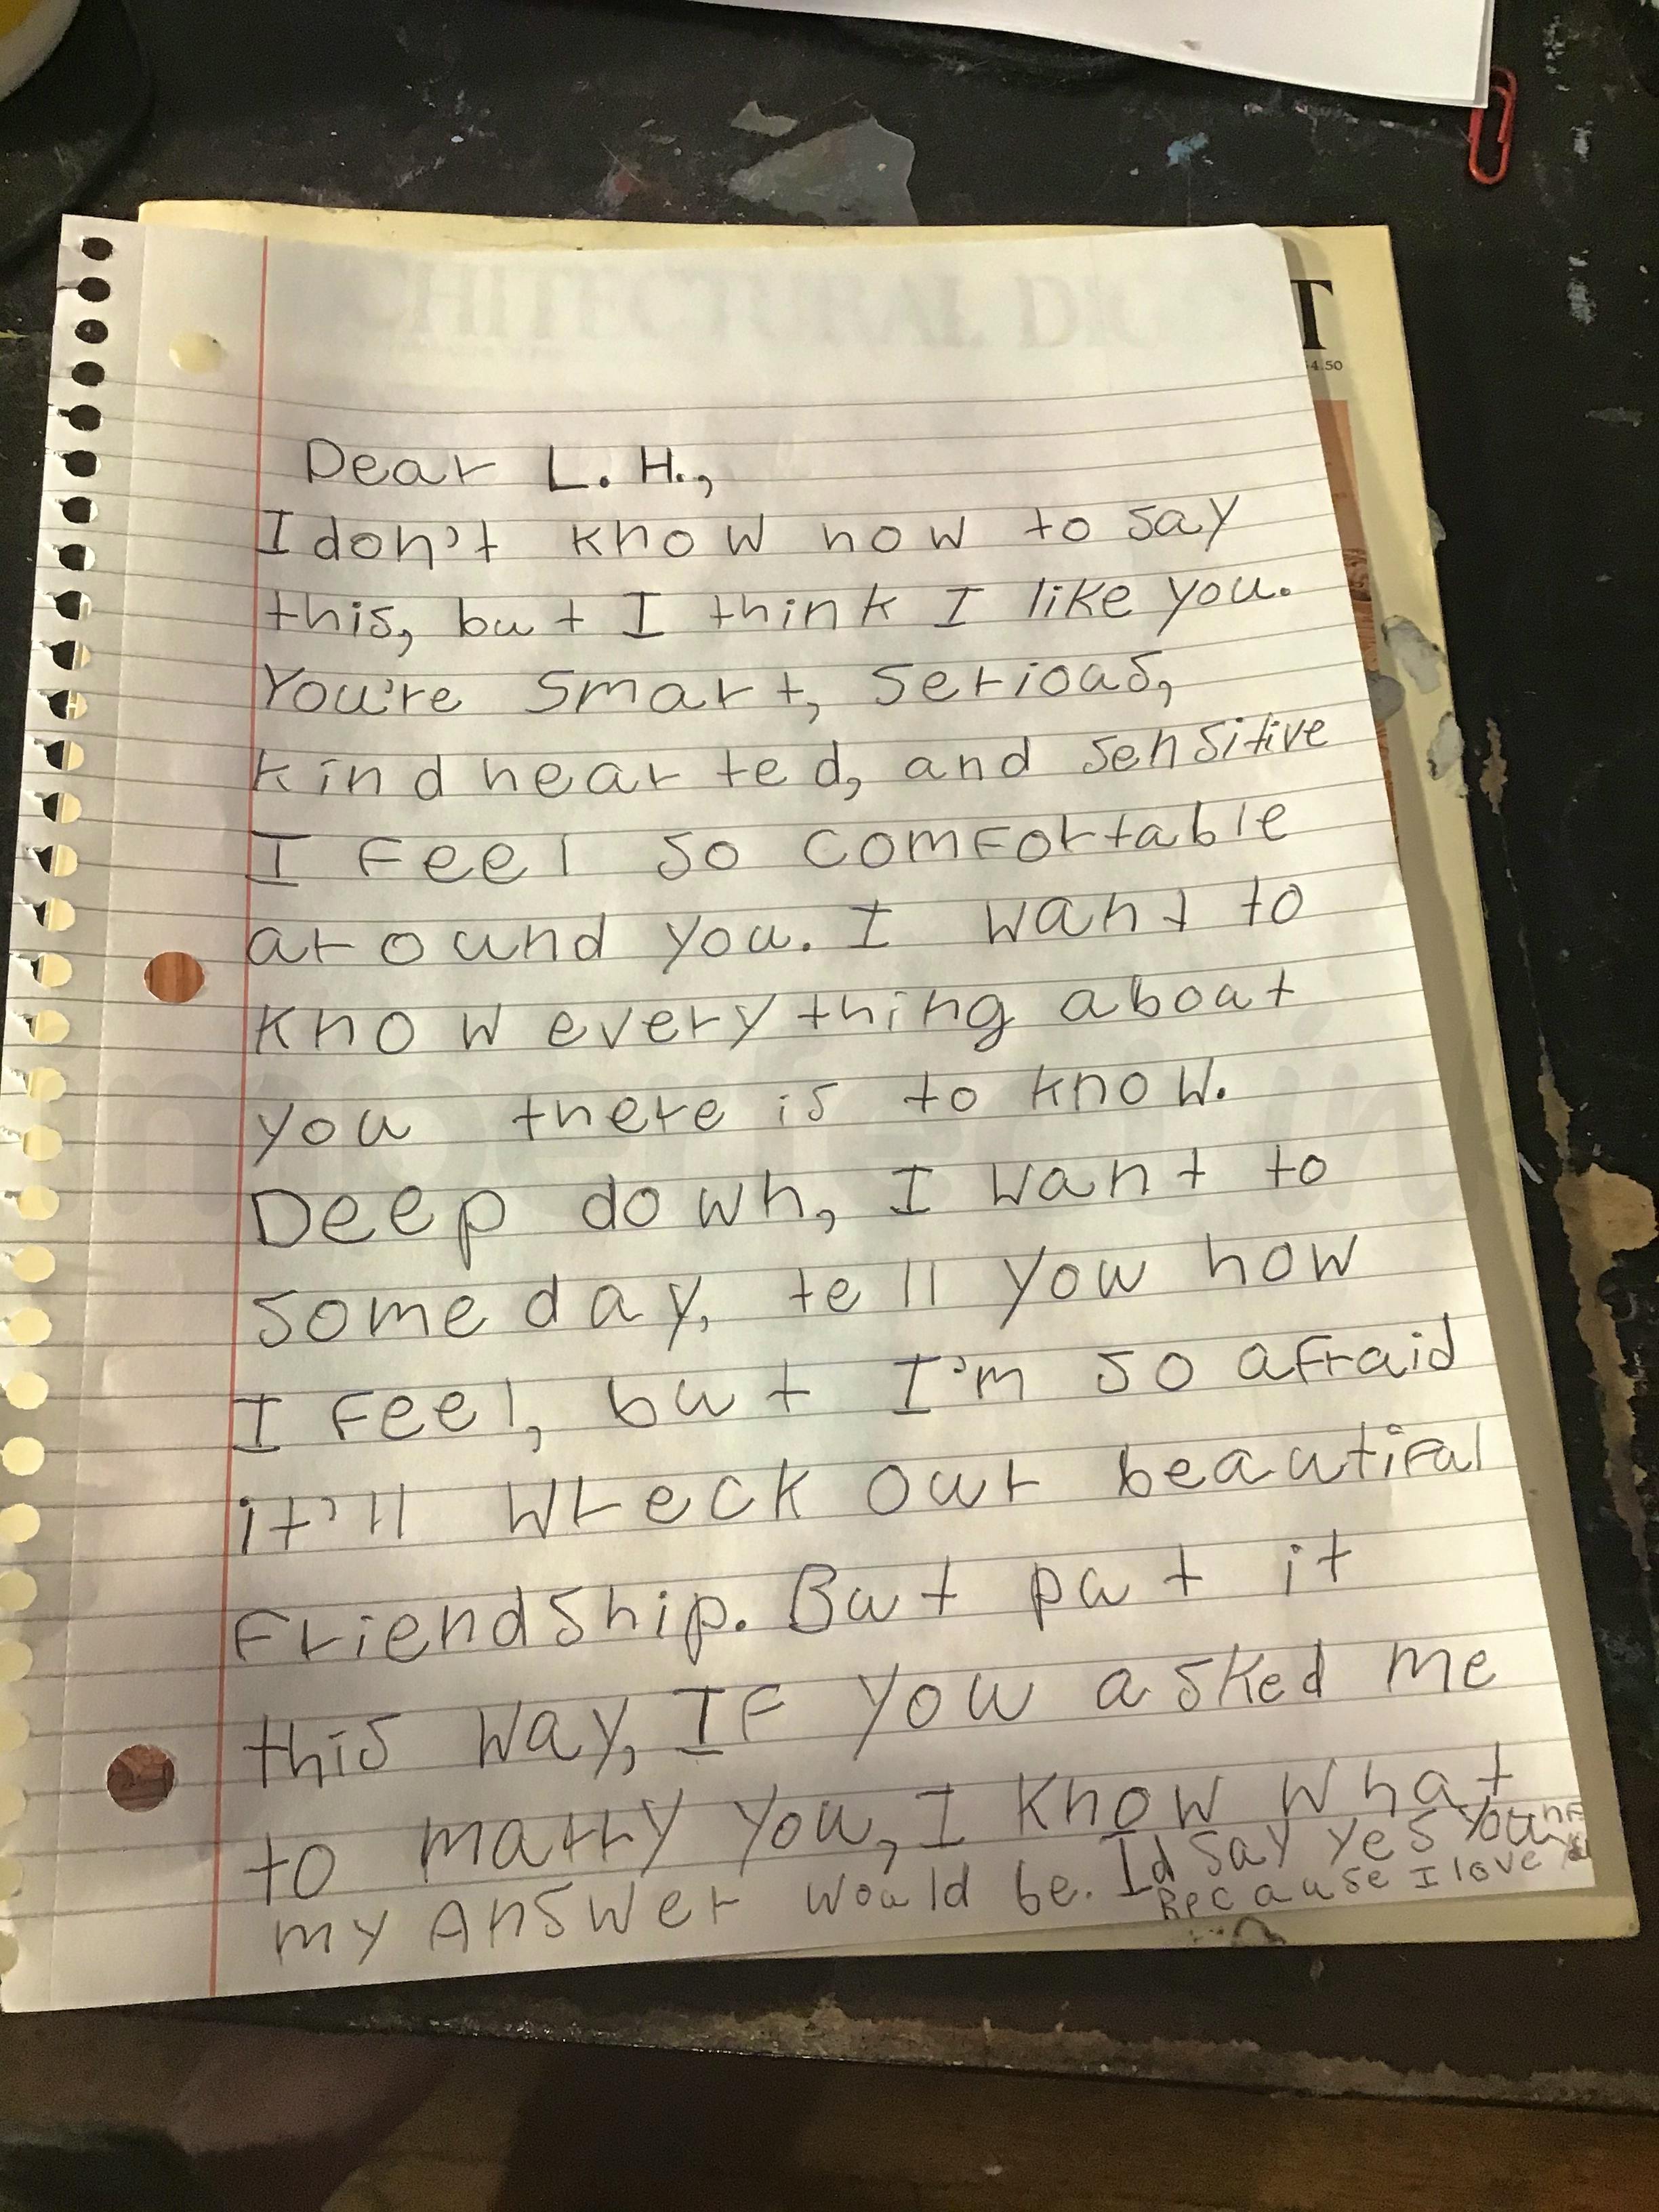 CHITECTURAL DI
T
4.50
Dear L. H.,
I don't know how to say
this, but I think I like you.
You're smart, serious,
kind hearted, and sensitive
I feel so comfortable
around you. I want to
know everything about
you there is to know.
Deep down, I want to
some day, tell you how
I feel, but I'm so afraid
it'll wreck our beautiful
friendship. But put it
this way, If you asked me
to marry you, I know what
my Answer would be. Id say yes
Because I love